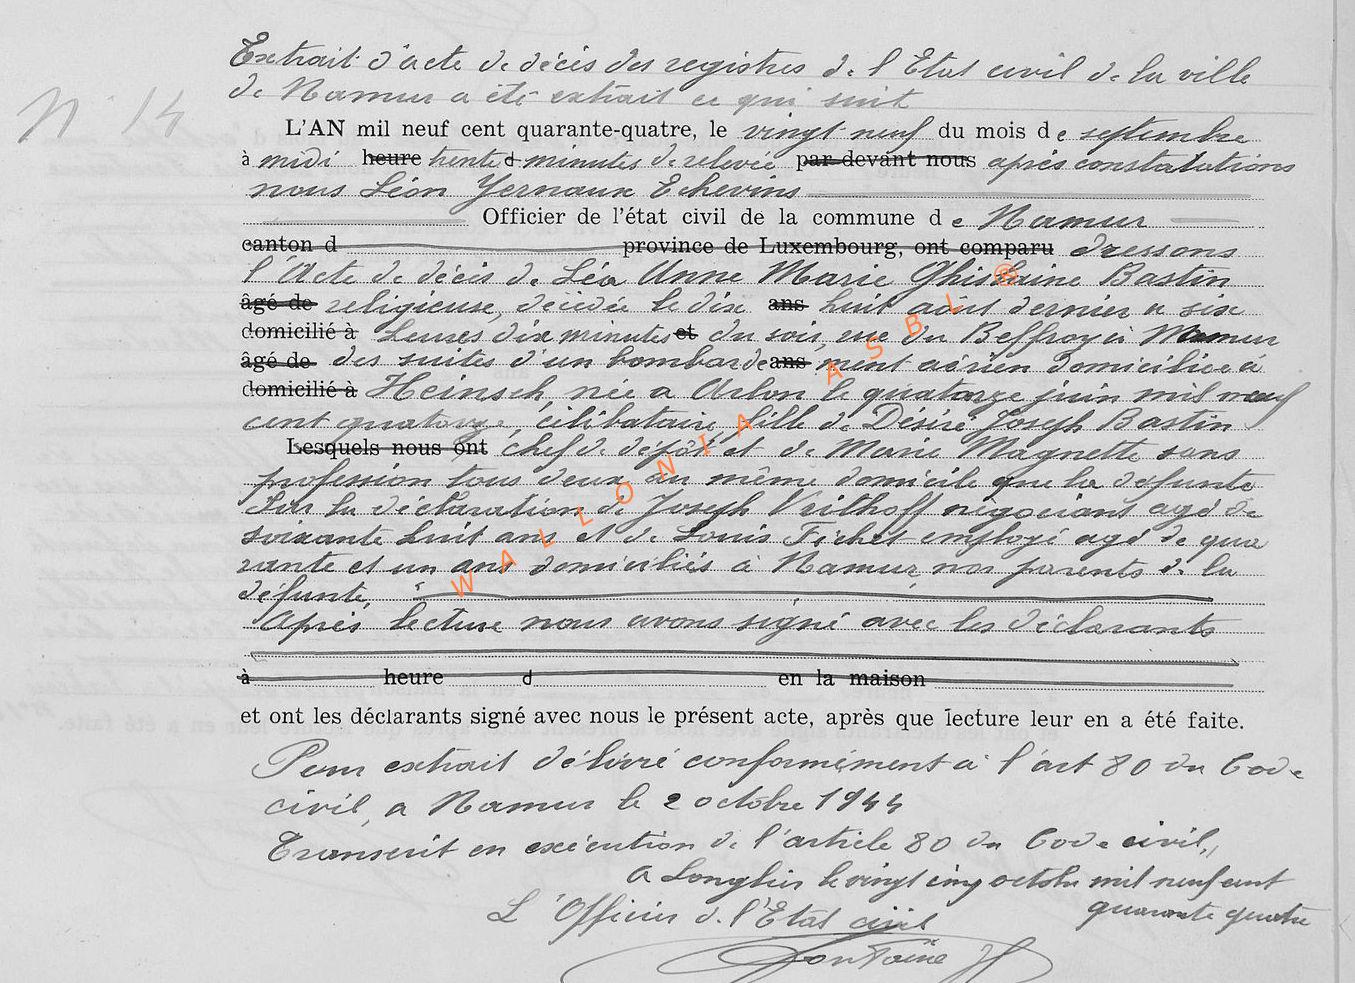 Extrait d'acte de décès des registres de l'Etat civil de la ville
de Namur a été extrait ce qui suit
N° 14
L'AN mil neuf cent quarante-quatre, le vingt neuf du mois de septembre
à midi heure trente d minutes de relevée par-devant nous après constatations
nous Léon Gernaux Echevins
Officier de l'état civil de la commune de Namur
canton d province de Luxembourg, ont comparu dressons
l'Acte de décès de Léa Anne Marie Ghislaine Bastin
âgé de religieuse, décédée le dix ans huit août dernier a six
domicilié à heures dix minutes et du soir, rue du Beffroy à Namur
âgé de des suites d'un bombarde ans ment aérien domiciliée à
domicilié à Heinsch, née a Arlon le quatorze juin mil neuf
cent quatorze, célibataire, fille de Désiré Joseph Bastin
Lesquels nous ont chef de dépôt et de Marie Magnette sans
profession tous deux au même domicile que la défunte
Sur la déclaration de Joseph négociant agé de
soixante huit ans et de Louis Fichet employé agé de qua
rante et un ans domiciliés à Namur, non parents de la
défunte.
Après lecture nous avons signé avec les déclarants
à heure d en la maison
et ont les déclarants signé avec nous le présent acte, après que lecture leur en a été faite.
Pour extrait délivré conformément à l'art 80 du Code
civil, a Namur le 2 octobre 1944
Transcrit en exécution de l'article 80 du Code civil,
A Longlier le vingt cinq octobre mil neuf cent
quarante quatre
L'Officier de l'Etat civil
Fontaine
WALLONIA ASBL ®